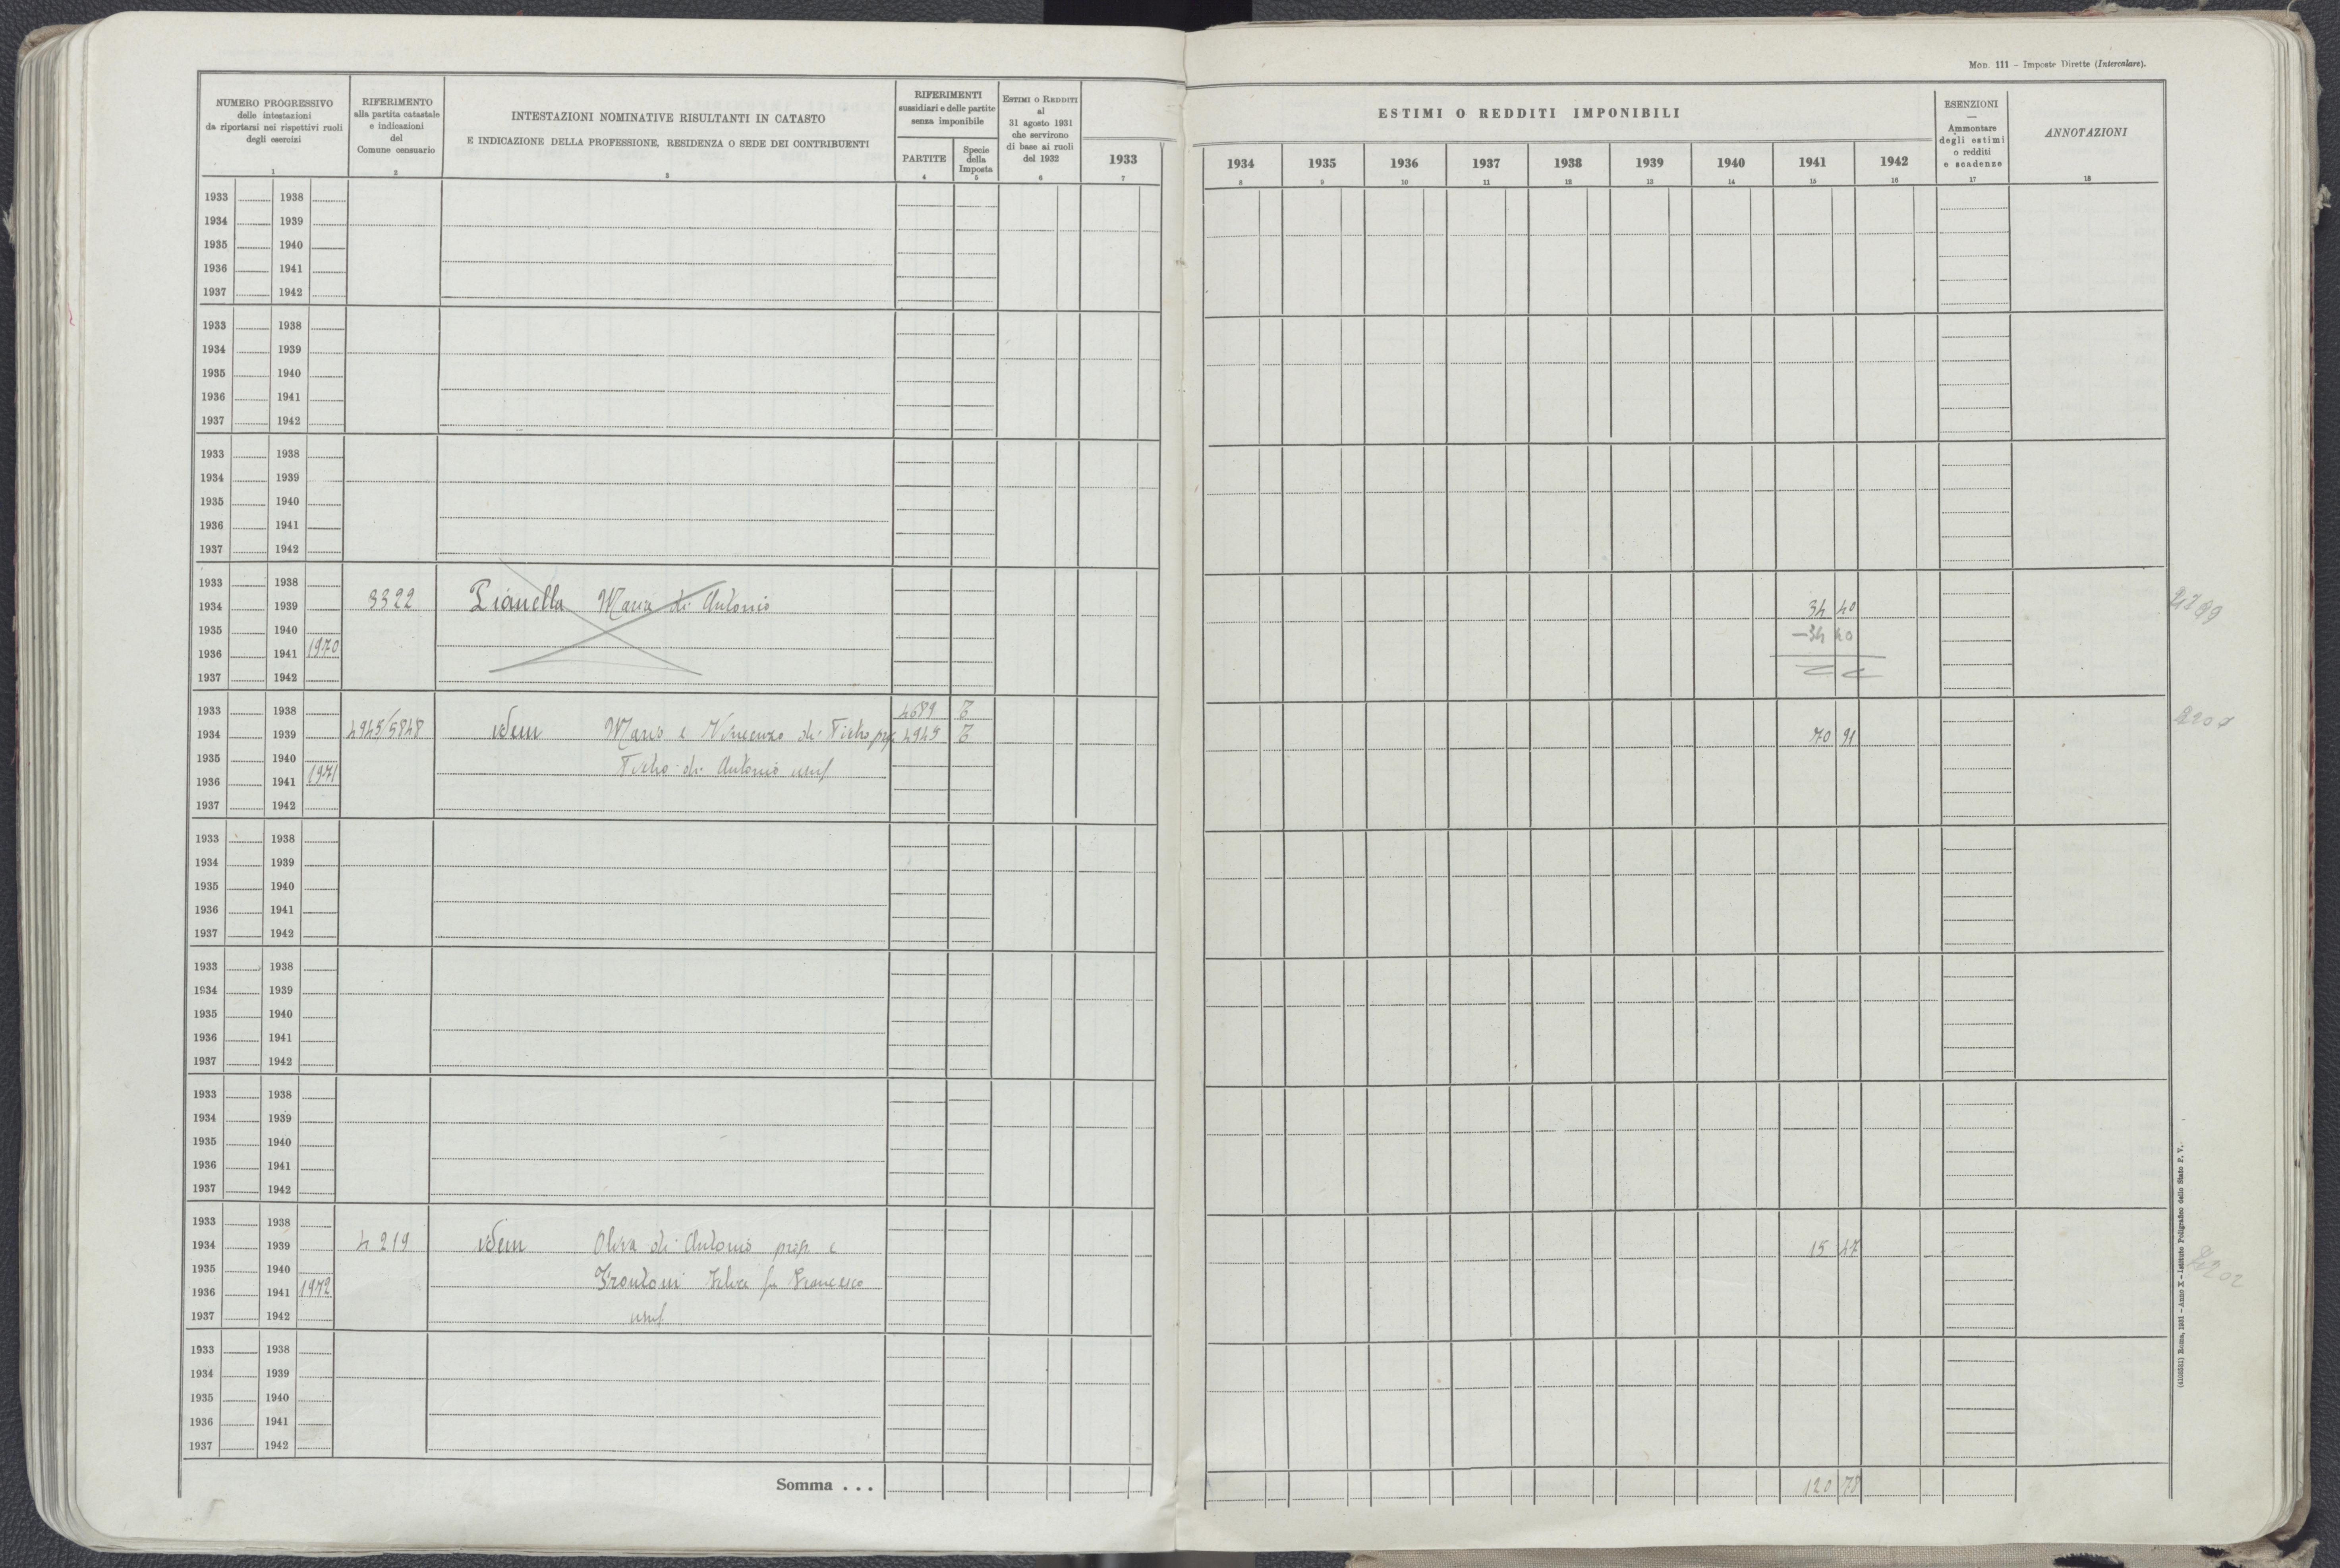 Mod. 111 – Imposte Dirette (Intercalare).
NUMERO PROGRESSIVO
delle intestazioni
da riportarsi nei rispettivi ruoli
degli esercizi
1
RIFERIMENTO
alla partita catastale
e indicazioni
del
Comune censuario
2
INTESTAZIONI NOMINATIVE RISULTANTI IN CATASTO
E INDICAZIONE DELLA PROFESSIONE, RESIDENZA O SEDE DEI CONTRIBUENTI
3
RIFERIMENTI
sussidiari e delle partite
senza imponibile
PARTITE
4
Specie
della
Imposta
5
Estimi o Redditi
al
31 agosto 1931
che servirono
di base ai ruoli
del 1932
6
1933
7
ESTIMI O REDDITI IMPONIBILI
1934 1935 1936 1937 1938 1939 1940 1941 1942
8 9 10 11 12 13 14 15 16
ESENZIONI
—
Ammontare
degli estimi
o redditi
e scadenze
17
ANNOTAZIONI
18
1933 1938
1934 1939
1935 1940
1936 1941
1937 1942
1933 1938
1934 1939
1935 1940
1936 1941
1937 1942
1933 1938
1934 1939
1935 1940
1936 1941
1937 1942
1933 1938
1934 1939 3322 Pianella Maria di Antonio 34 40
1935 1940 —34 40
1936 1941 1970
1937 1942
1933 1938 4689 T
1934 1939 4945/5848 idem Mario e Vincenzo di Pietro prop 4945 T 70 91
1935 1940 Pietro di Antonio usuf
1936 1941 1971
1937 1942
1933 1938
1934 1939
1935 1940
1936 1941
1937 1942
1933 1938
1934 1939
1935 1940
1936 1941
1937 1942
1933 1938
1934 1939
1935 1940
1936 1941
1937 1942
1933 1938
1934 1939 4219 idem Oliva di Antonio prop. e 15 47
1935 1940 Frontoni fu Francesco
1936 1941 1972
1937 1942 usuf
2202
1933 1938
1934 1939
1935 1940
1936 1941
1937 1942
Somma . . . 120 78
(4103581) Roma, 1931 – Anno X – Istituto Poligrafico dello Stato P. V.